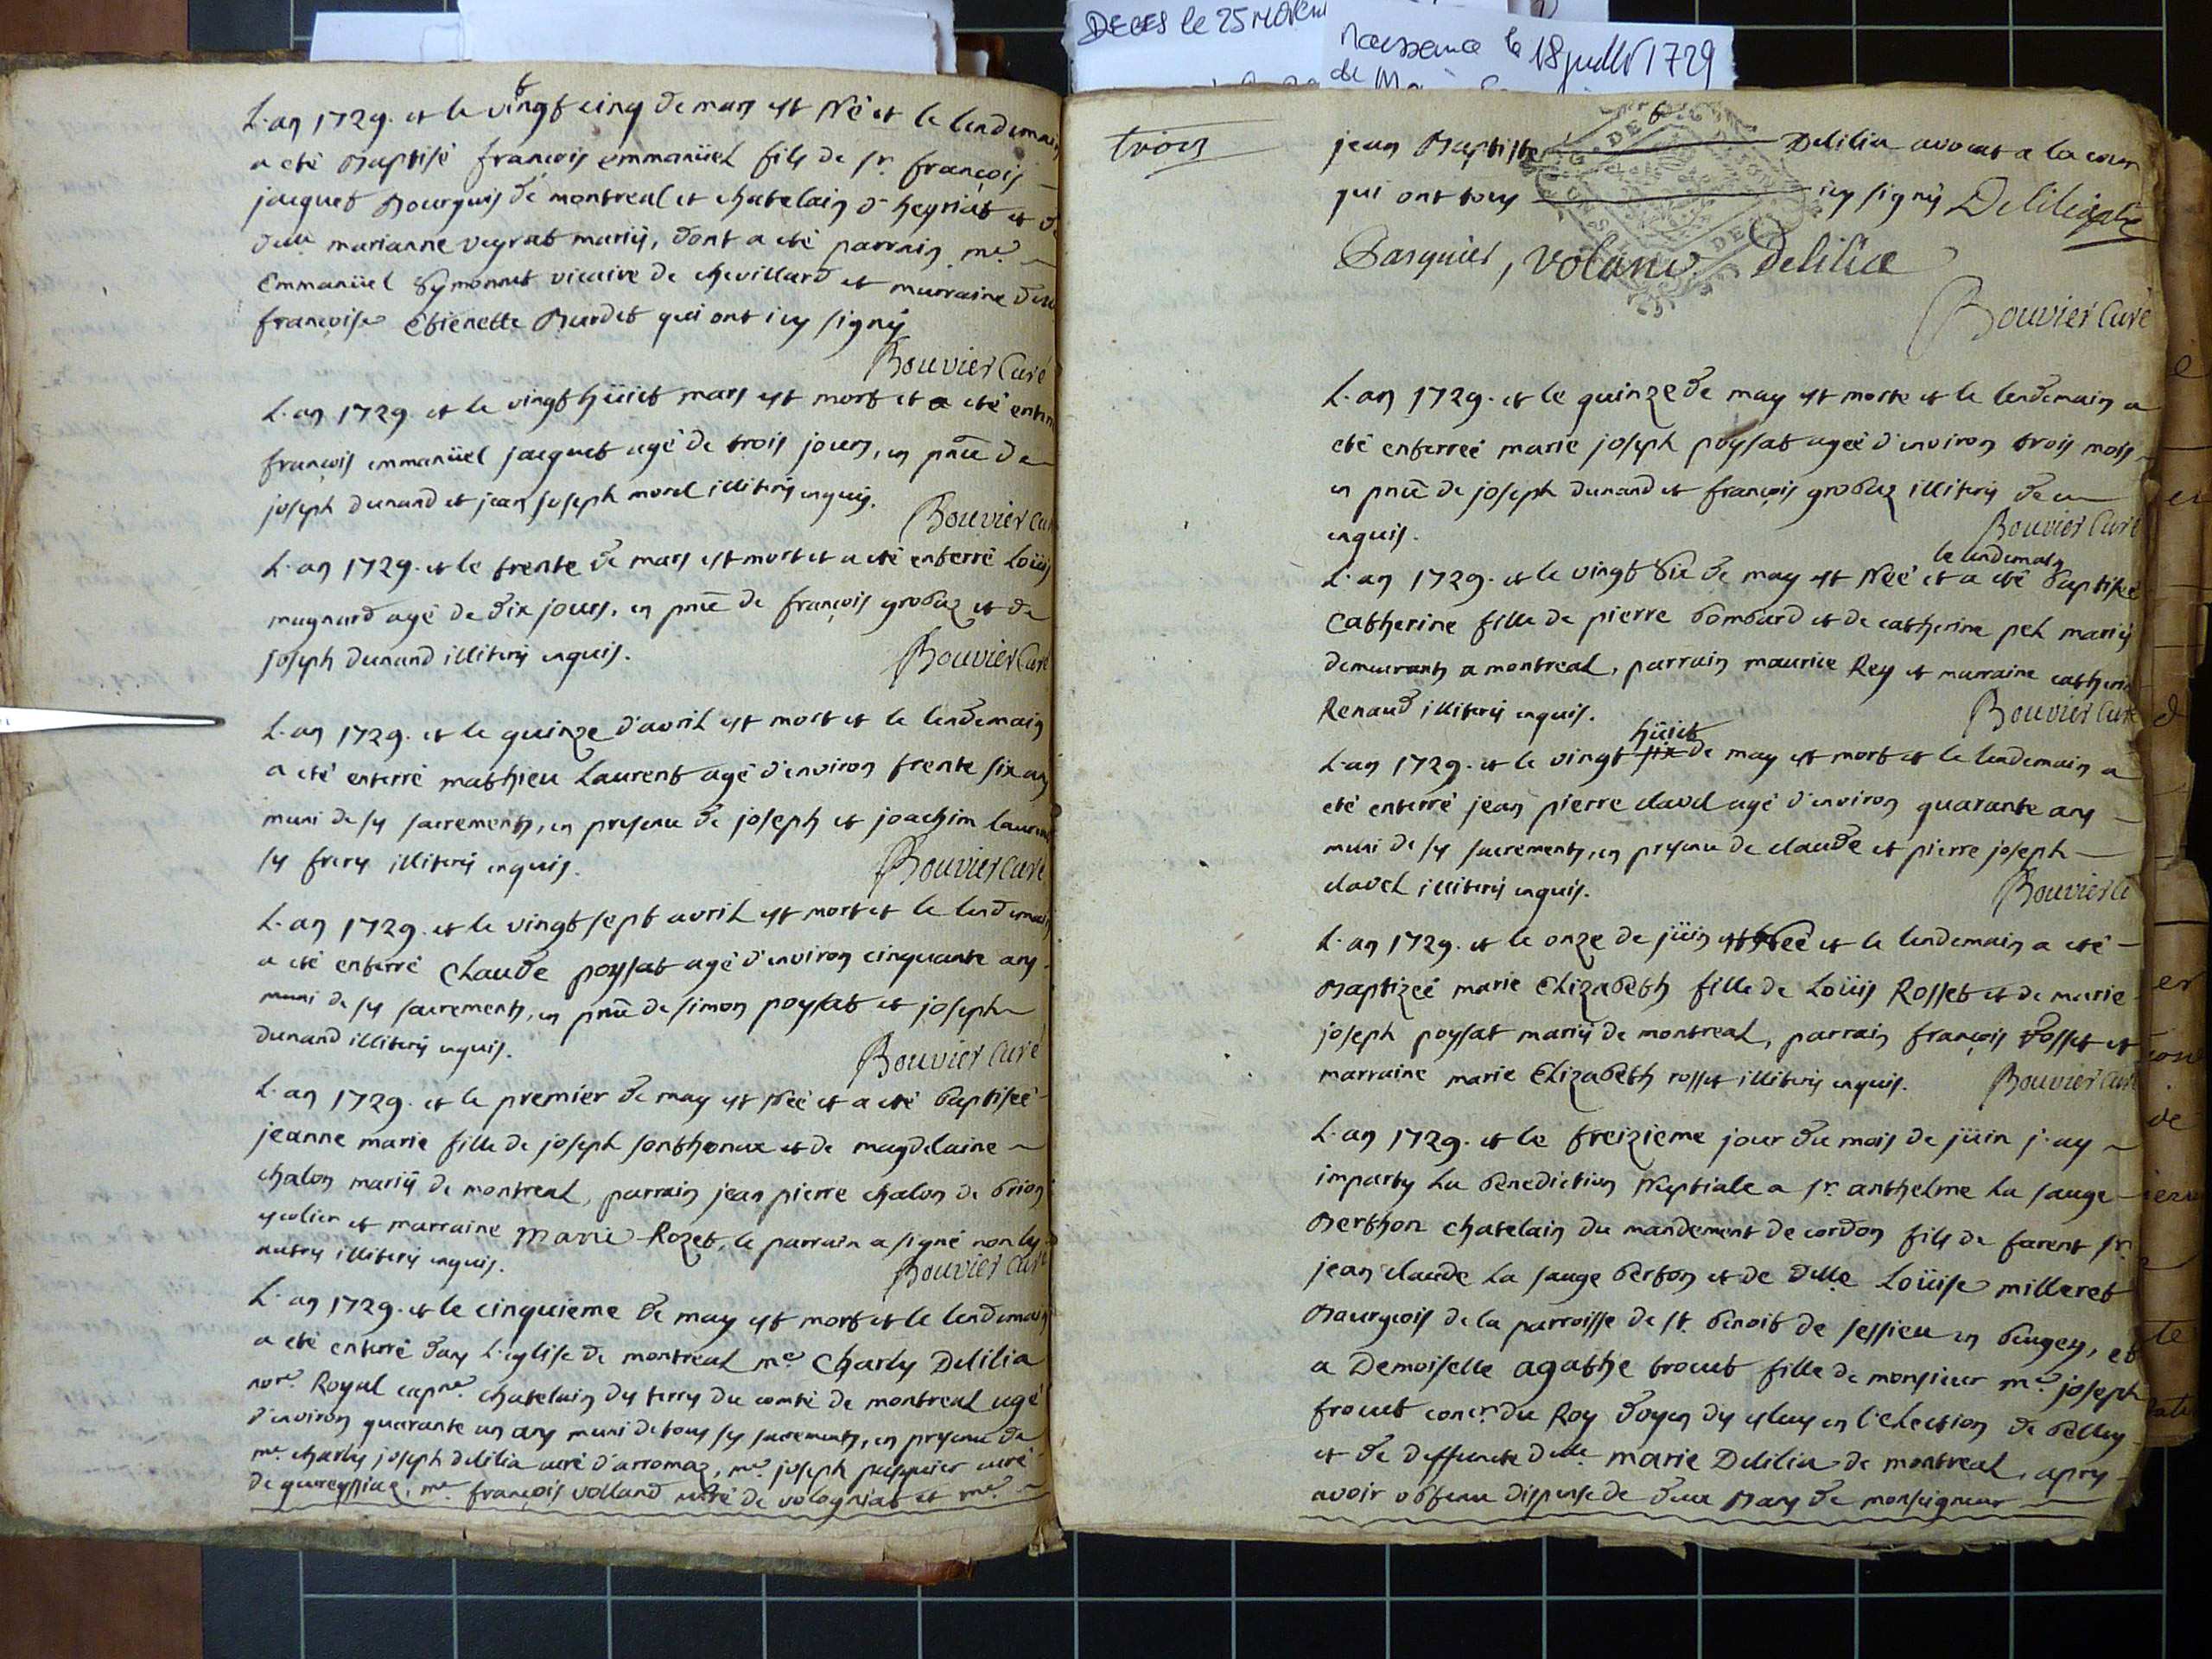 DECES le 25 Novem
naissance le 18 juillet 1729
de
L'an 1729. et le vingt cinq de mars est né et le lendemain
a eté Baptisé françois emmanüel fils de sr. françois
jacquet Bourgois de montreal et chatelain d'heyriat et de
delle marianne veyrat mariés, dont a eté parrain me.
Emmanüel Symonnet vicaire de chevillard et marraine delle
françoise Etienette Burdet qui ont icy signés
Bouvier Curé
L'an 1729. et le vingt hüict mars est mort et a eté enterré
françois emmanüel jacquet agé de trois jours, en pnce de
joseph dunand et jean joseph morel illiterés enquis.
Bouvier Curé
L'an 1729. et le trente de mars est mort et a eté enterré Loüis
magnard agé de dix jours, en pnce de françois grobaz et de
joseph dunand illiterés enquis.
Bouvier Curé
L'an 1729. et le quinze d'avril est mort et le lendemain
a eté enterré mathieu Laurent agé d'environ trente six ans
muni de ses sacrements, en presence de joseph et joachim laurent
ses freres illiterés enquis.
Bouvier Curé
L'an 1729. et le vingt sept avril est mort et le lendemain
a eté enterré Claude poysat agé d'environ cinquante ans
muni de ses sacrements, en pnce de simon poysat et joseph
dunand illiterés enquis.
Bouvier Curé
L'an 1729. et le premier de may est née et a eté baptisée
jeanne marie fille de joseph sonthonax et de magdelaine
chalon mariés de montreal, parrain jean pierre chalon de brion
escolier et marraine marie Rozet, le parrain a signé non les
autres illiterés enquis.
Bouvier Curé
L'an 1729. et le cinquieme de may est mort et le lendemain
a eté enterré dans l'eglise de montreal me. Charles Delilia
nore. Royal capne. chatelain des terres du comté de montreal agé
d'environ quarante un ans muni de tous ses sacrements, en presence de
me. charles joseph delilia curé d'arromaz, me. joseph pasquier curé
de me. françois volland curé de volognat et me.
trois
jean Baptiste Delilia avocat a la cour
qui ont tous icy signés Delilia ptre
Pasquier, Voland. Delilia
Bouvier Curé
L'an 1729. et le quinze de may est morte et le lendemain a
eté enterreé marie joseph poysat ageé d'environ trois mois
en pnce de joseph dunand et françois grobaz illiterés de ce
enquis.
Bouvier Curé
le lendemain
L'an 1729. et le vingt six de may est née et a eté baptisée
Catherine fille de pierre bombard et de catherine pel mariés
demeurants a montreal, parrain maurice Rey et marraine catherine
Renaud illiterés enquis.
Bouvier Curé
hüict
L'an 1729. et le vingt six de may est mort et le lendemain a
eté enterré jean pierre clavel agé d'environ quarante ans
muni de ses sacrements, en presence de claude et pierre joseph
clavel illiterés enquis.
Bouvier Cé
L'an 1729. et le onze de jüin est née et le lendemain a eté
Baptizeé marie Elizabeth fille de Loüis Rosset et de marie
joseph poysat mariés de montreal, parrain françois rosset et
marraine marie Elizabeth rosset illiterés enquis.
Bouvier Curé
L'an 1729. et le treizieme jour du mois de jüin j'ay
imparty La benediction Nuptiale a sr. anthelme La sauge
Berthon chatelain du mandement de cordon fils de sr.
jean claude La sauge berton et de Dlle. Loüise milleret
Bourgeois de la parroisse de st. benoit de sessieu en beugey, et
a Demoiselle agathe trocut fille de monsieur me. joseph
trocut concr. du Roy doyen des esleus en l'Election de belley
et de deffuncte delle marie Delilia de montreal, apres
avoir obtenu dispense de deux Bans de monseigneur